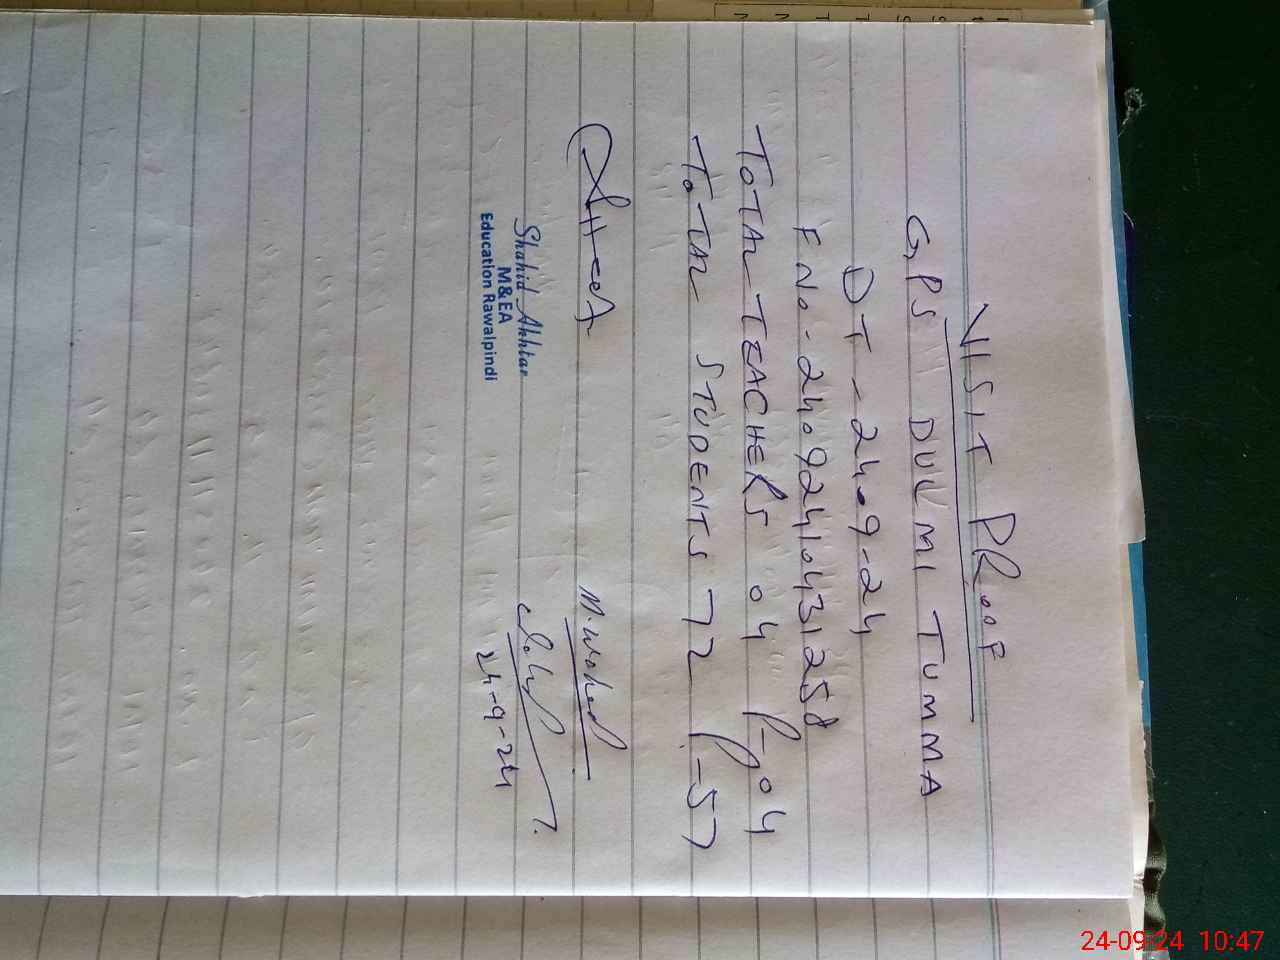 VISIT PRooF
GPS DULMI TUMMA
DT - 24.09-24
F No - 24092410431258
ToTAL TEACHERS 04 P-04
ToTAL STUDENTS 72 P-57
M. Waheed
Shahid Akhtar
M&EA
Education Rawalpindi
24-9-24
24-09-24 10:47